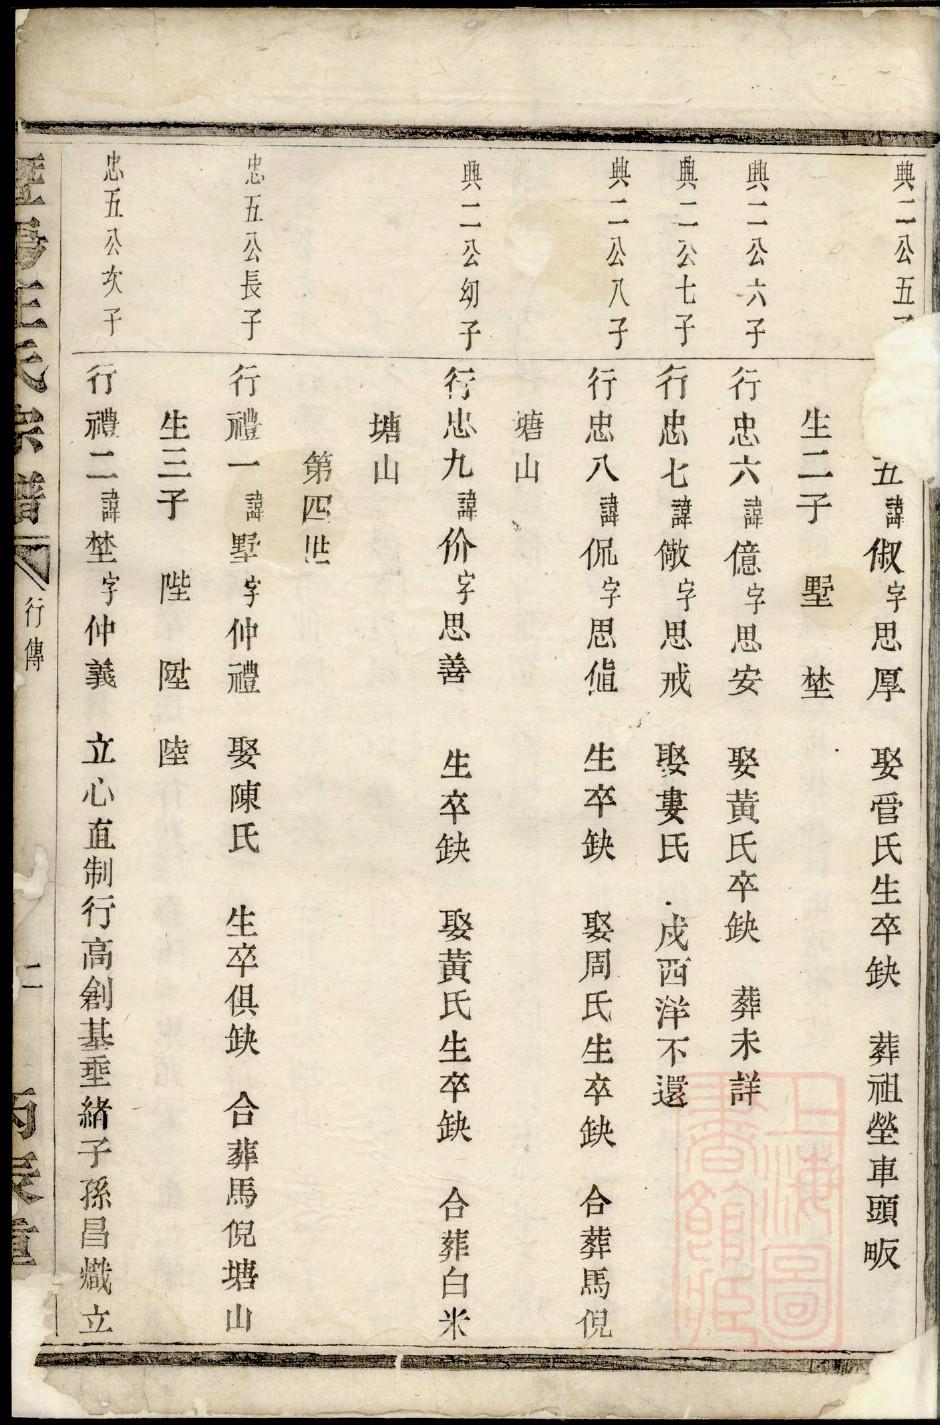 興二公五
五諱俶字思厚 娶管氏生卒缺 葬祖塋車頭畈
生二子 墅 埜
興二公六子
行忠六諱億字思安 娶黃氏卒缺 葬未詳
興二公七子
行忠七諱儆字思戒 娶婁氏 戍西洋不還
興二公八子
行忠八諱侃字思值 生卒缺 娶周氏生卒缺 合葬馬倪
塘山
興二公幼子
行忠九諱价字思善 生卒缺 娶黃氏生卒缺 合葬白米
塘山
第四世
忠五公長子
行禮一諱墅字仲禮 娶陳氏 生卒俱缺 合葬馬倪塘山
生三子 陛 陞 陸
忠五公次子
行禮二諱埜字仲義 立心直制行高創基垂緒子孫昌熾立
王氏宗譜 行傳 二 丙辰重
上海圖書館藏